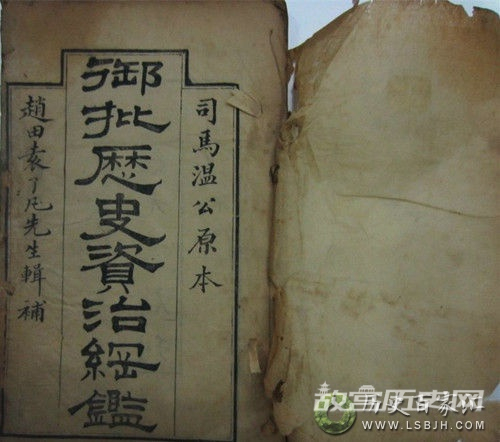 司馬温公原本
御批歴史資治綱鑑
趙田袁了凡先生輯補
故宫历史网
历史百家网
WWW.LSBJH.COM